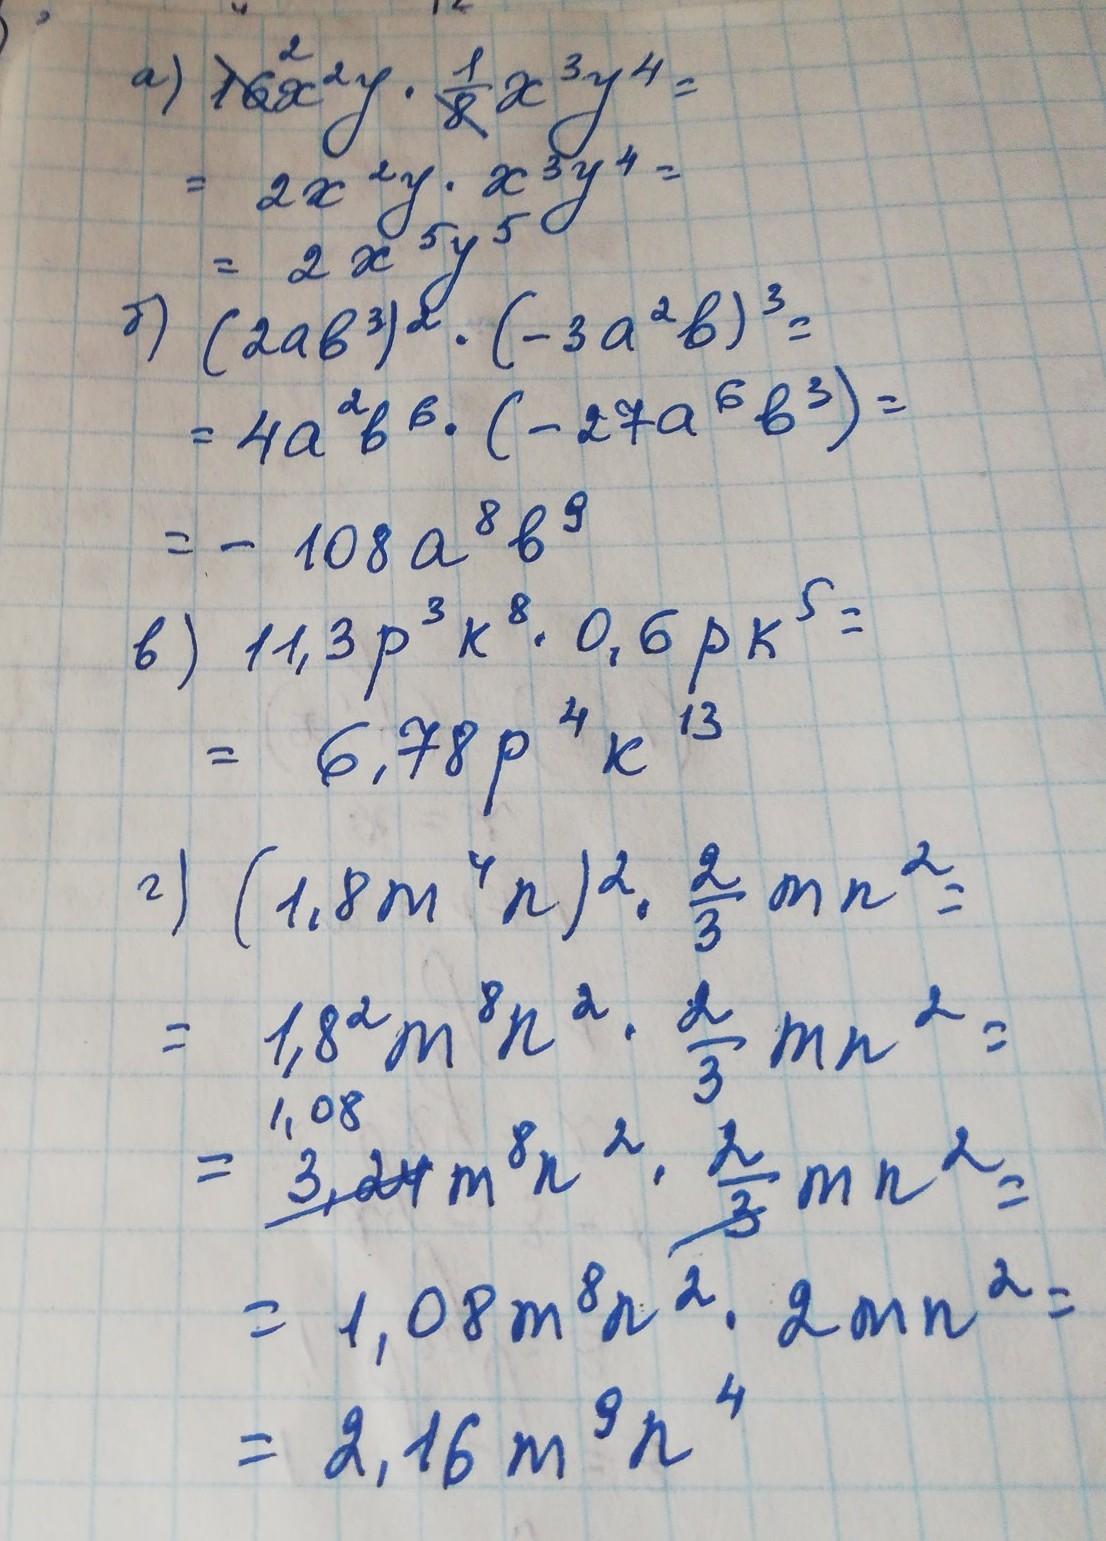 а) 16x²y · 1/8 x³y⁴ =
= 2x²y · x³y⁴ =
= 2x⁵y⁵
б) (2aв³)² · (-3a²в)³ =
= 4a²в⁶ · (-27a⁶в³) =
= - 108a⁸в⁹
в) 11,3p³к⁸ · 0,6pк⁵ =
= 6,78p⁴к¹³
г) (1,8m⁴n)² · 2/3 mn² =
= 1,8²m⁸n² · 2/3 mn² =
1,08
= 3,24m⁸n² · 2/3 mn² =
= 1,08m⁸n² · 2mn² =
= 2,16m⁹n⁴